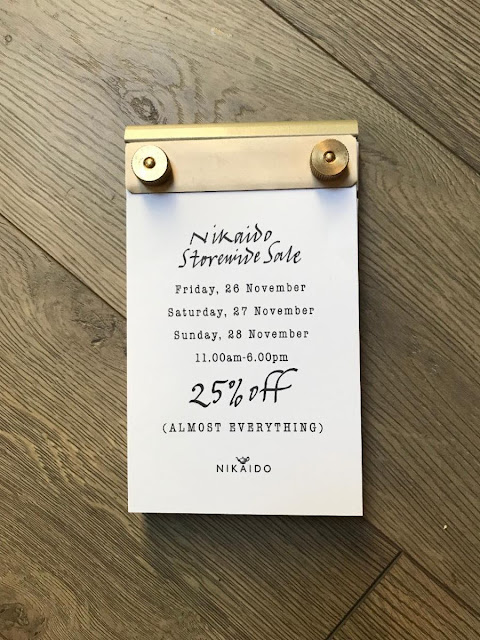 Nikaido
Storewide Sale
Friday, 26 November
Saturday, 27 November
Sunday, 28 November
11.00am-6.00pm
25% off
(ALMOST EVERYTHING)
NIKAIDO